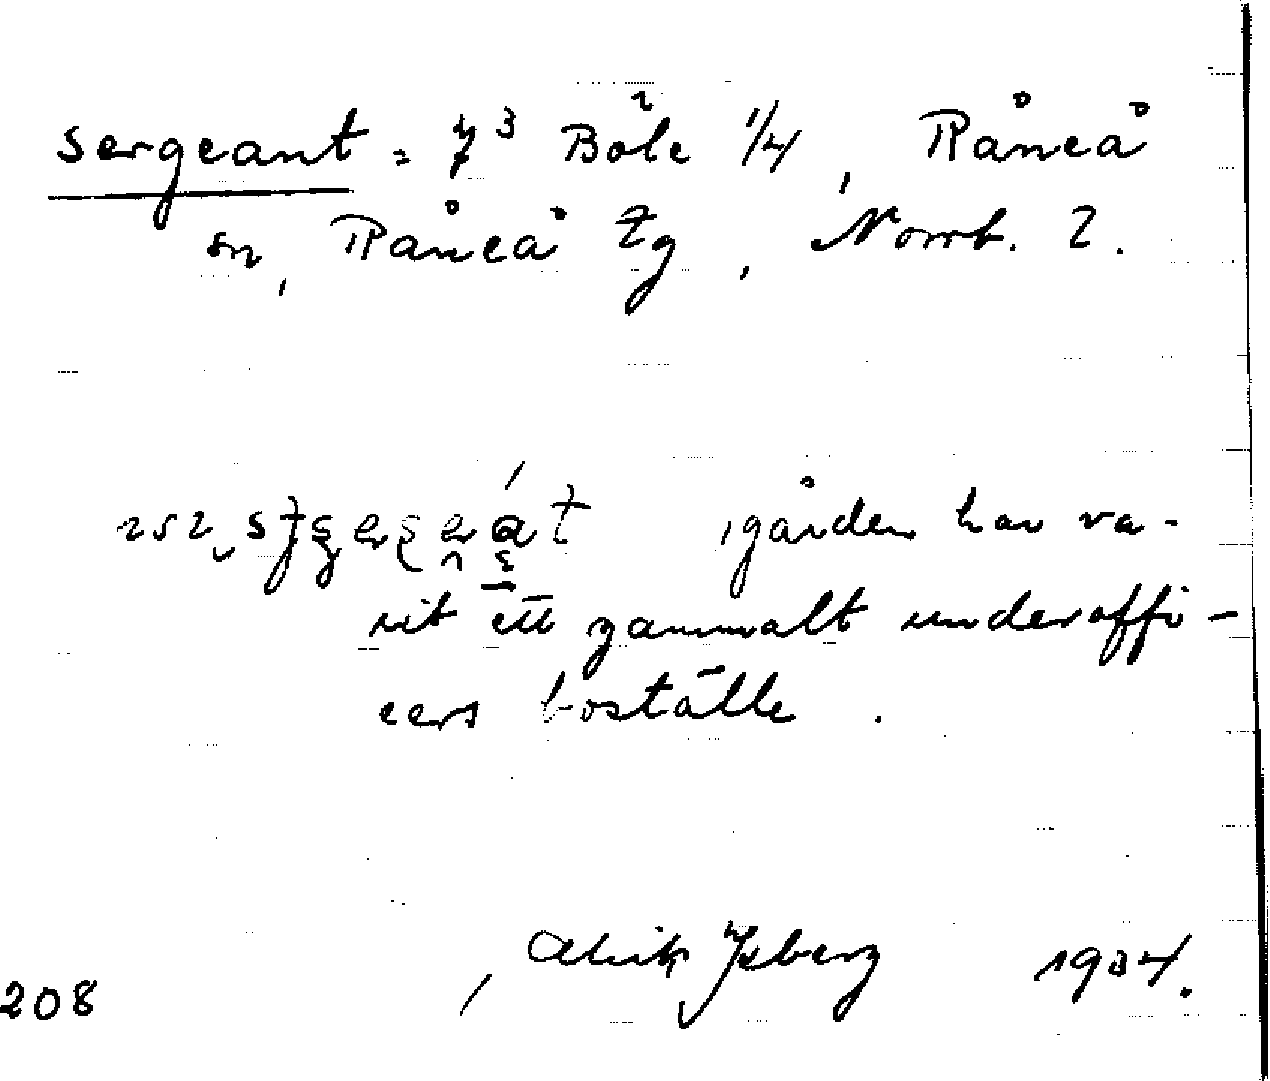 sergeant = 7³ Böle 1/4, Råneå
sn, Råneå tg, Norrb. l.
gården har va-
rit ett gammalt underoffi-
cers boställe.
Alrik Isberg 1934.
208